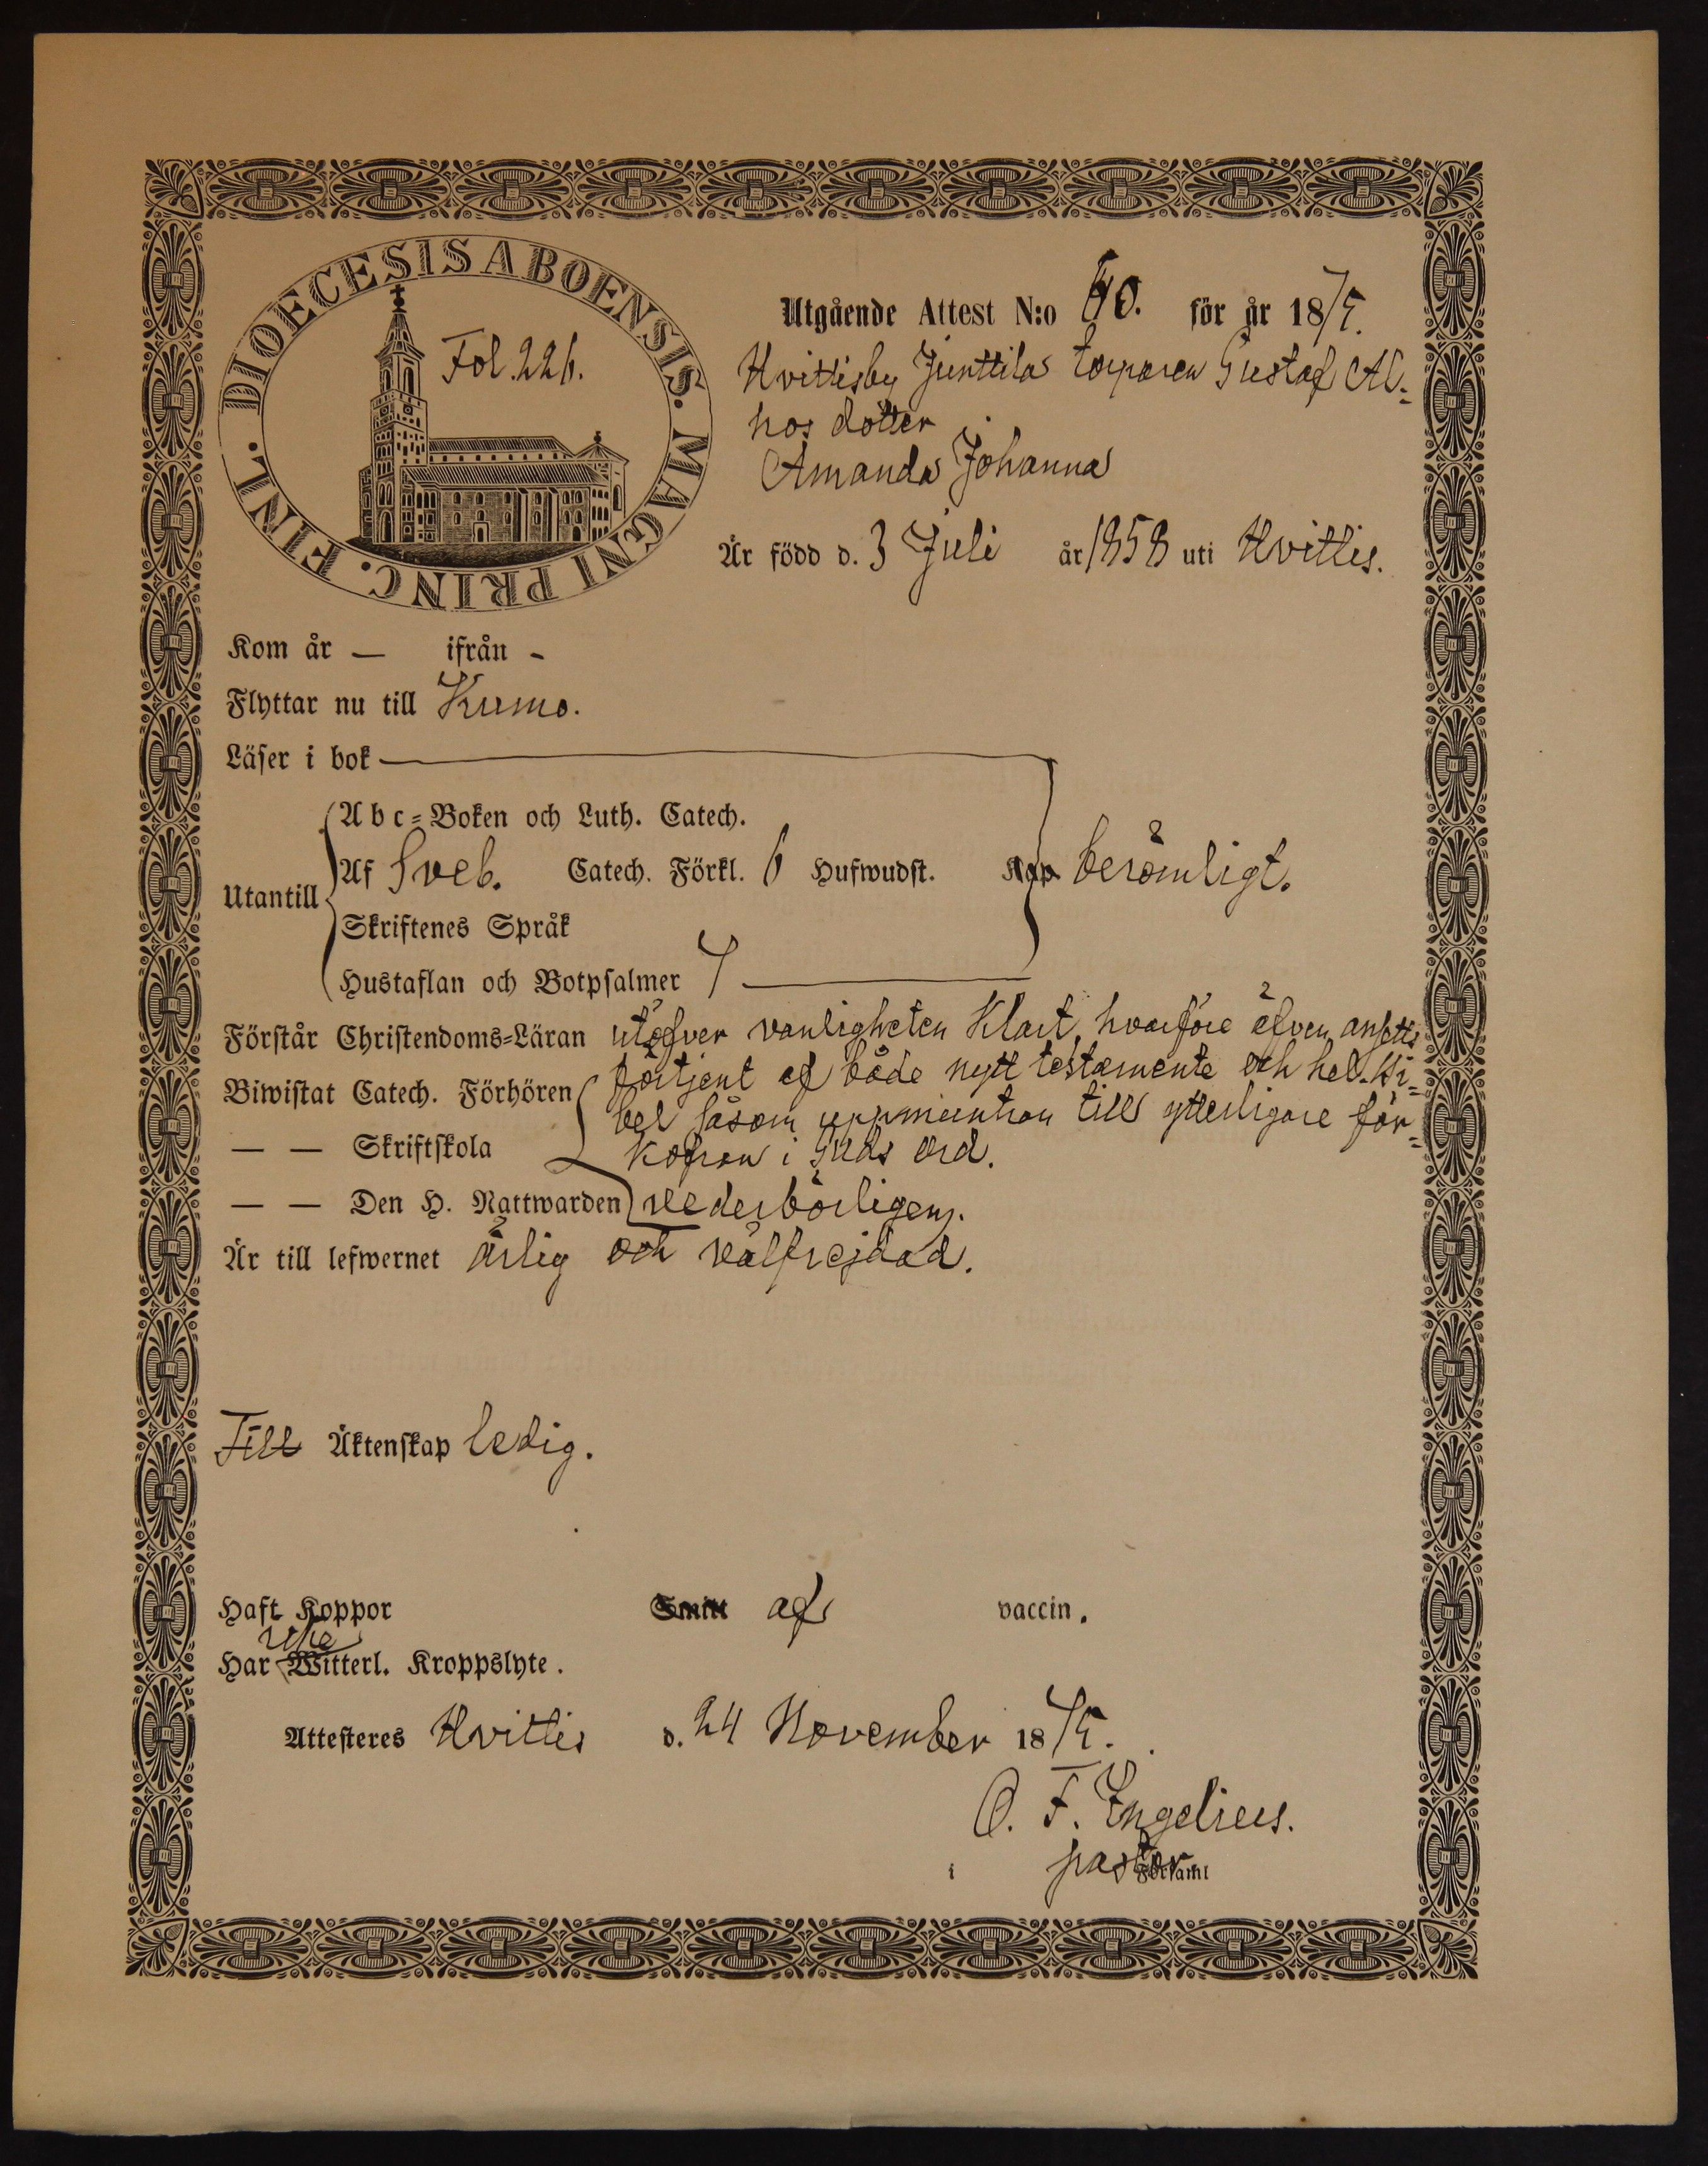 DIOECESIS ABOENSIS. MAGNI PRINC. FINL.
Fol. 226.
Utgående Attest N:o 40. för år 1875.
Hvittisby Junttila torparen Gustaf Al-
hos dotter
Amanda Johanna
Är född d. 3 Juli år 1858 uti Hvittis.
Kom år — ifrån -
Flyttar nu till Kumo.
Läser i bok
Utantill
Abc-Boken och Luth. Catech.
Af Sveb. Catech. Förkl. 6 Hufwudst. Kap berömligt.
Skriftenes Språk
Hustaflan och Botpsalmer 7
Förstår Christendoms-Läran utöfver vanligheten klart, hvarföre äfven ansetts
Biwistat Catech. Förhören förtjent af både nytt testamente och hel. Bi-
bel såsom uppmuntran till ytterligare för-
— — Skriftskola kofran i Guds Ord.
— — Den H. Nattwarden vederbörligen.
Är till lefwernet ärlig och välfrejdad.
Till Äktenskap ledig.
Haft Koppor Smitt af vaccin.
Har icke Witterl. Kroppslyte.
Attesteres Hvittis d. 24 November 1875.
O. F. Engelius.
i pastor Församl